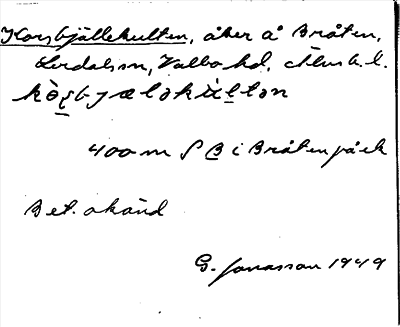 Korsbjällekulten, åker å Bråten,
Lerdals sn, Valbo hd, Älvsb. l.
400 m S B i Bråten på ek
Bet. okänd
G. Jonasson 1949